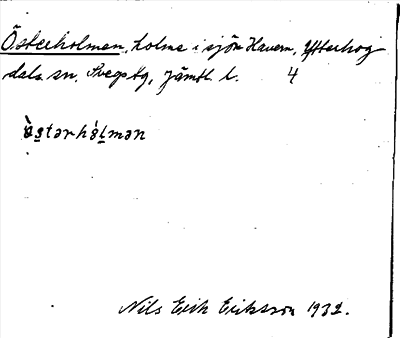 Österholmen, holme i sjön Havern, Ytterhog
dals sn, Svegs tg, Jämtl l. 4
östərhòlmən
Nils Erik Eriksson 1932.